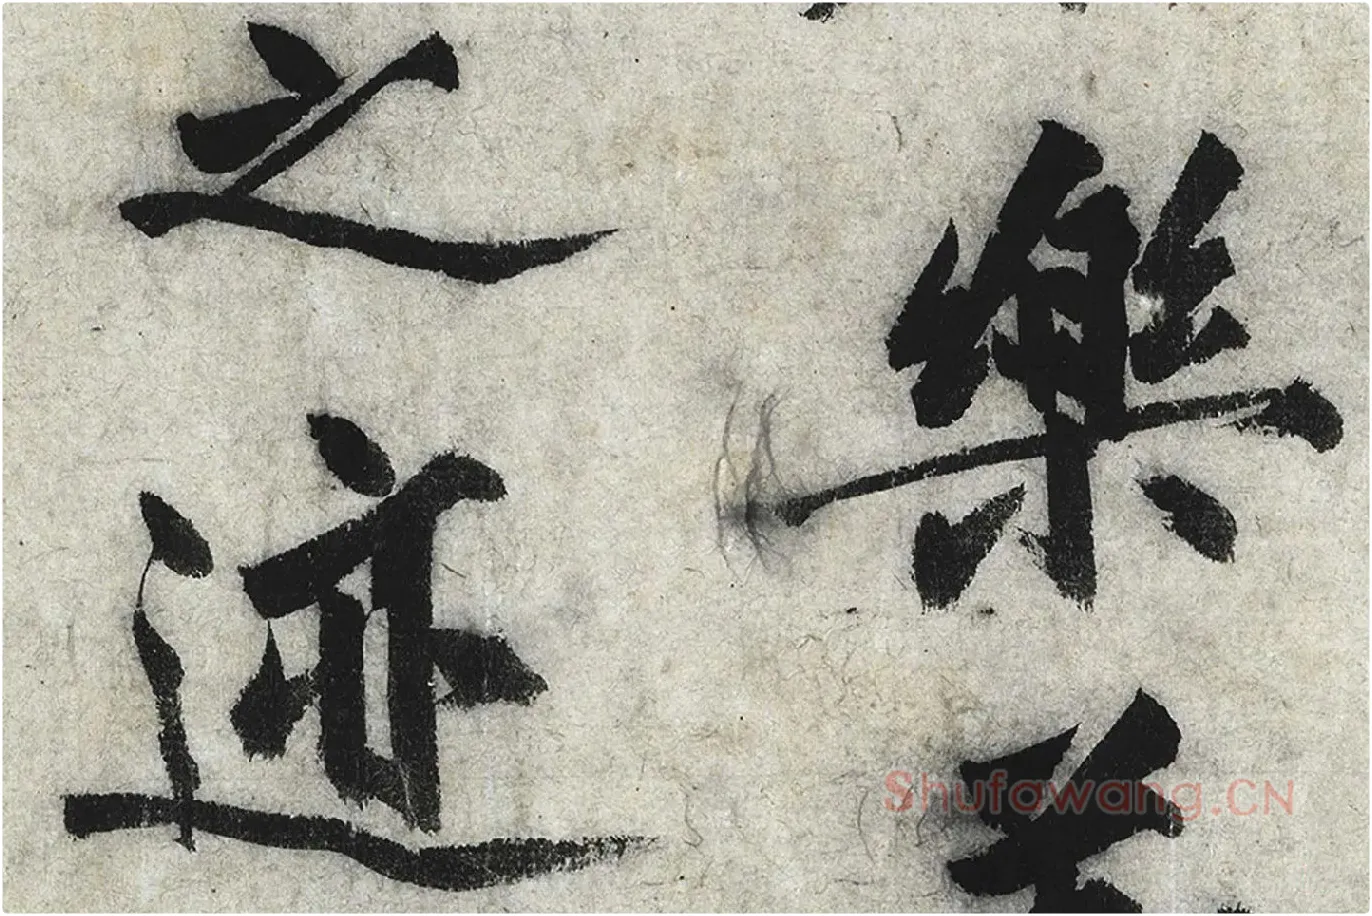 樂
之迹
Shufawang.CN